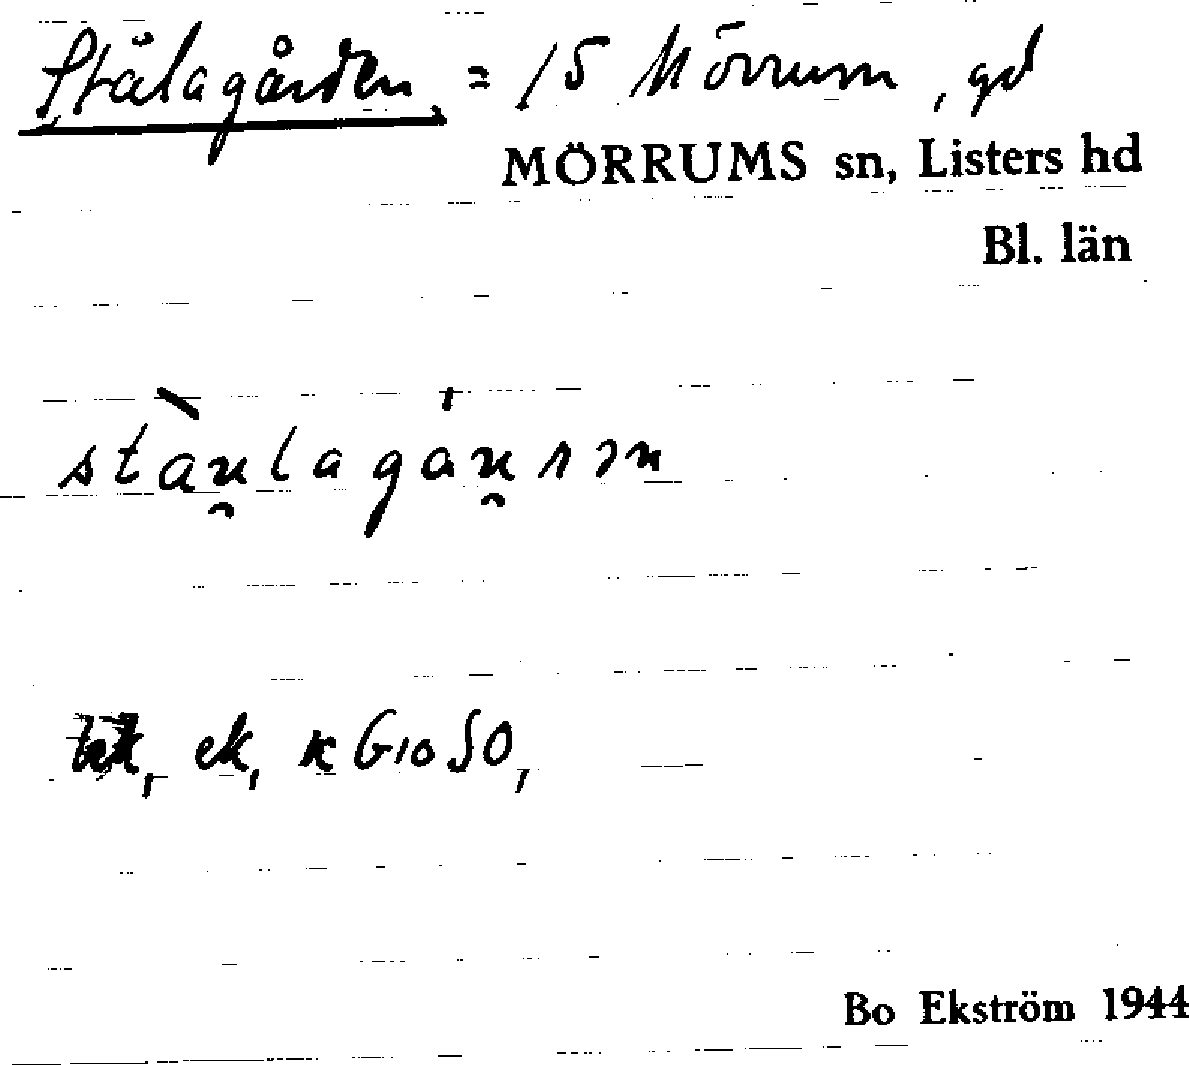 Stålagården, = 15 Mörrum, gd
MÖRRUMS sn, Listers hd
Bl. län
stàu̯lagáu̯ꞃən
ek, κ G10 SO,
Bo Ekström 1944